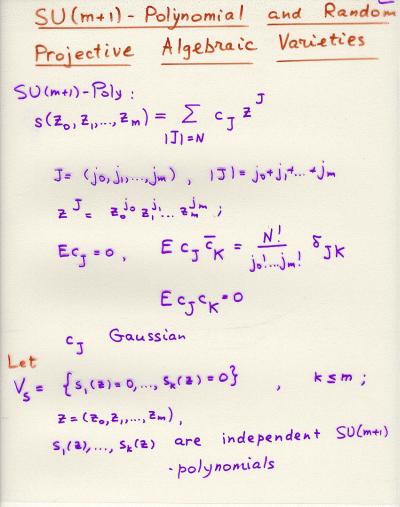 SU(m+1)-Polynomial and Random
Projective Algebraic Varieties
SU(m+1)-Poly:
s(z₀,z₁,...,z_m) = ∑_{|J|=N} c_J z^J
J = (j₀,j₁,...,j_m), |J| = j₀+j₁+...+j_m
z^J = z₀^{j₀} z₁^{j₁}...z_m^{j_m};
Ec_J = 0, E c_J c̄_K = N!/(j₀!...j_m!) δ_{JK}
E c_J c_K = 0
c_J Gaussian
Let
V_s = {s₁(z)=0,...,s_k(z)=0}, k≤m;
z=(z₀,z₁,...,z_m),
s₁(z),...,s_k(z) are independent SU(m+1)
-polynomials